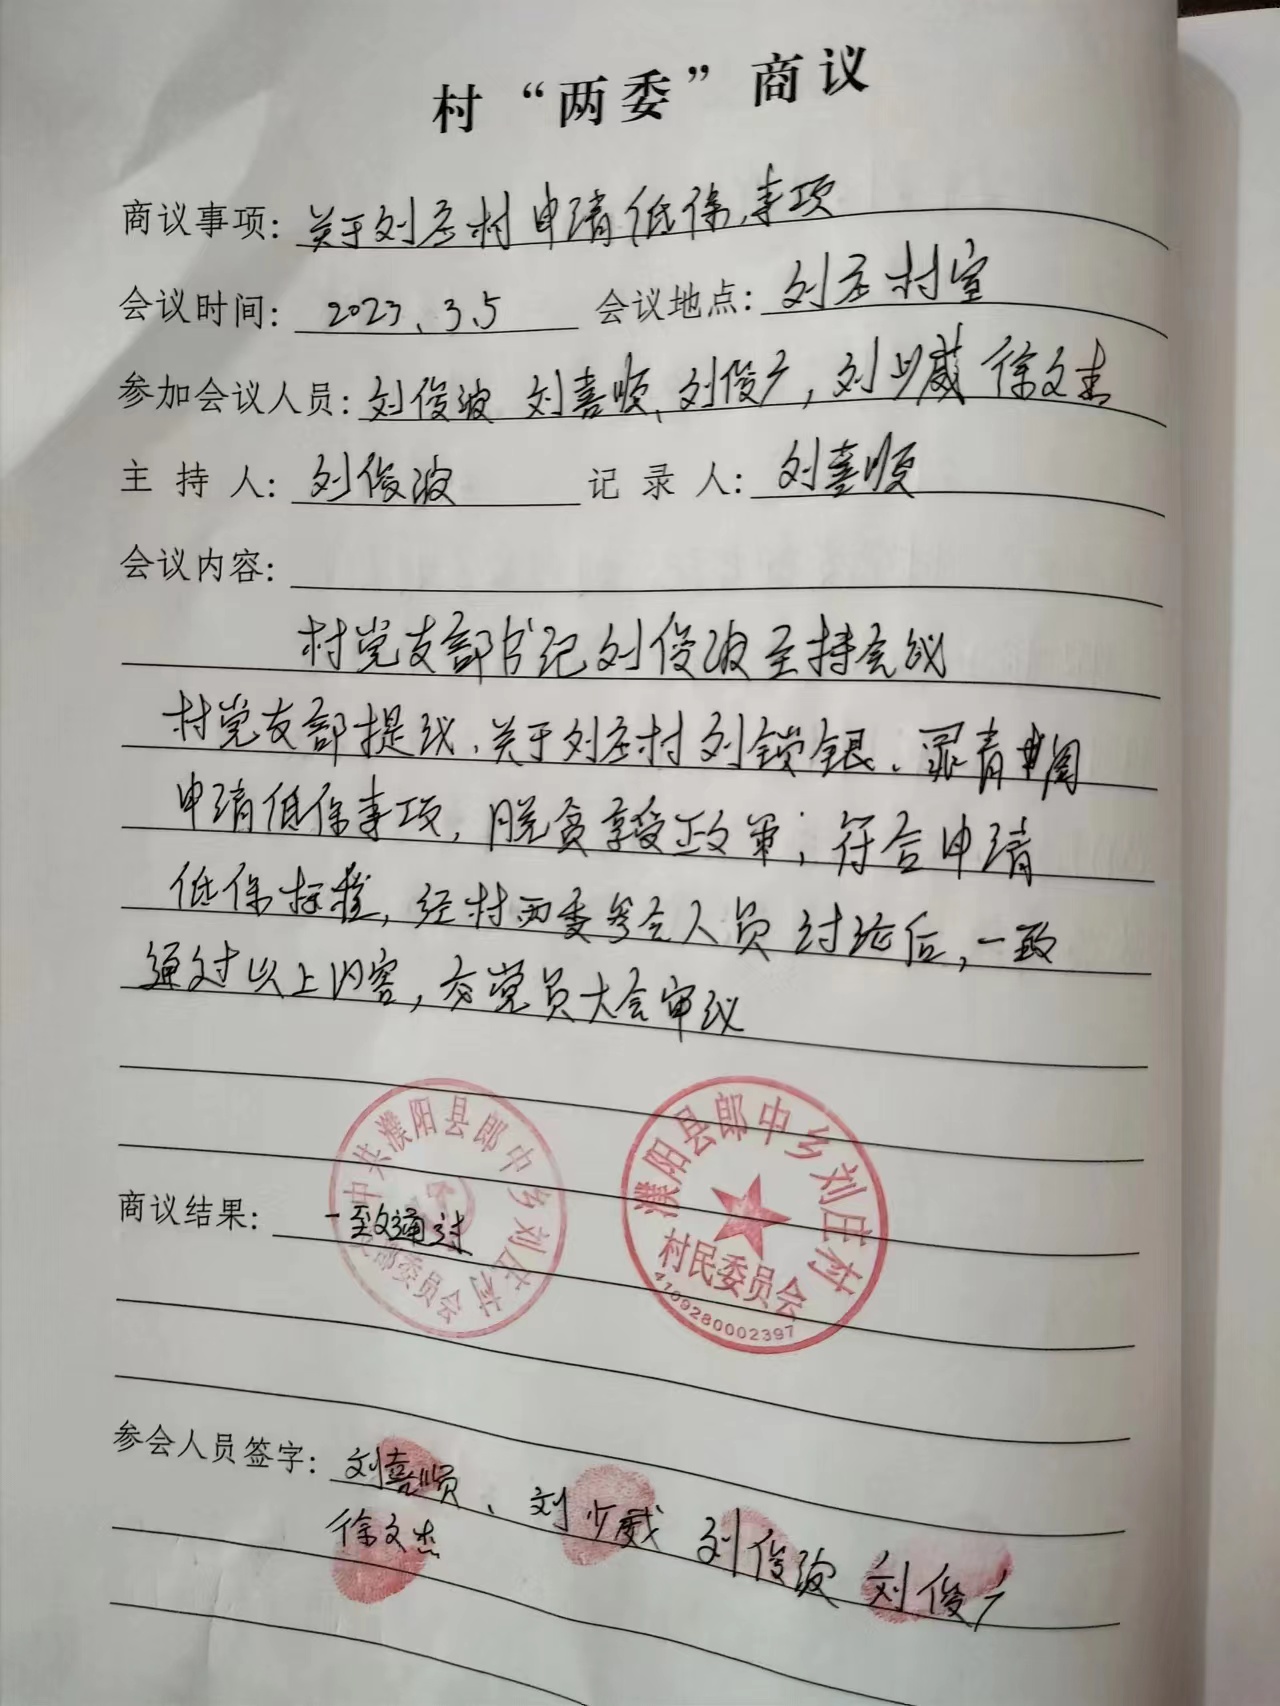 村“两委”商议
商议事项: 关于刘庄村申请低保事项
会议时间: 2023、3.5 会议地点: 刘庄村室
参加会议人员: 刘俊波 刘喜顺、刘俊广, 刘少威 徐文杰
主持人: 刘俊波 记录人: 刘喜顺
会议内容:
村党支部书记刘俊波主持会议
村党支部提议、关于刘庄村刘锁银、青
申请低保事项, 脱贫享受政策; 符合申请
低保标准, 经村两委参会人员讨论后, 一致
通过以上内容, 交党员大会审议
中共濮阳县郎中乡刘庄村
支部委员会
濮阳县郎中乡刘庄村
村民委员会
4109280002397
商议结果: 一致通过
参会人员签字: 刘喜顺、刘少威 刘俊波 刘俊广
徐文杰